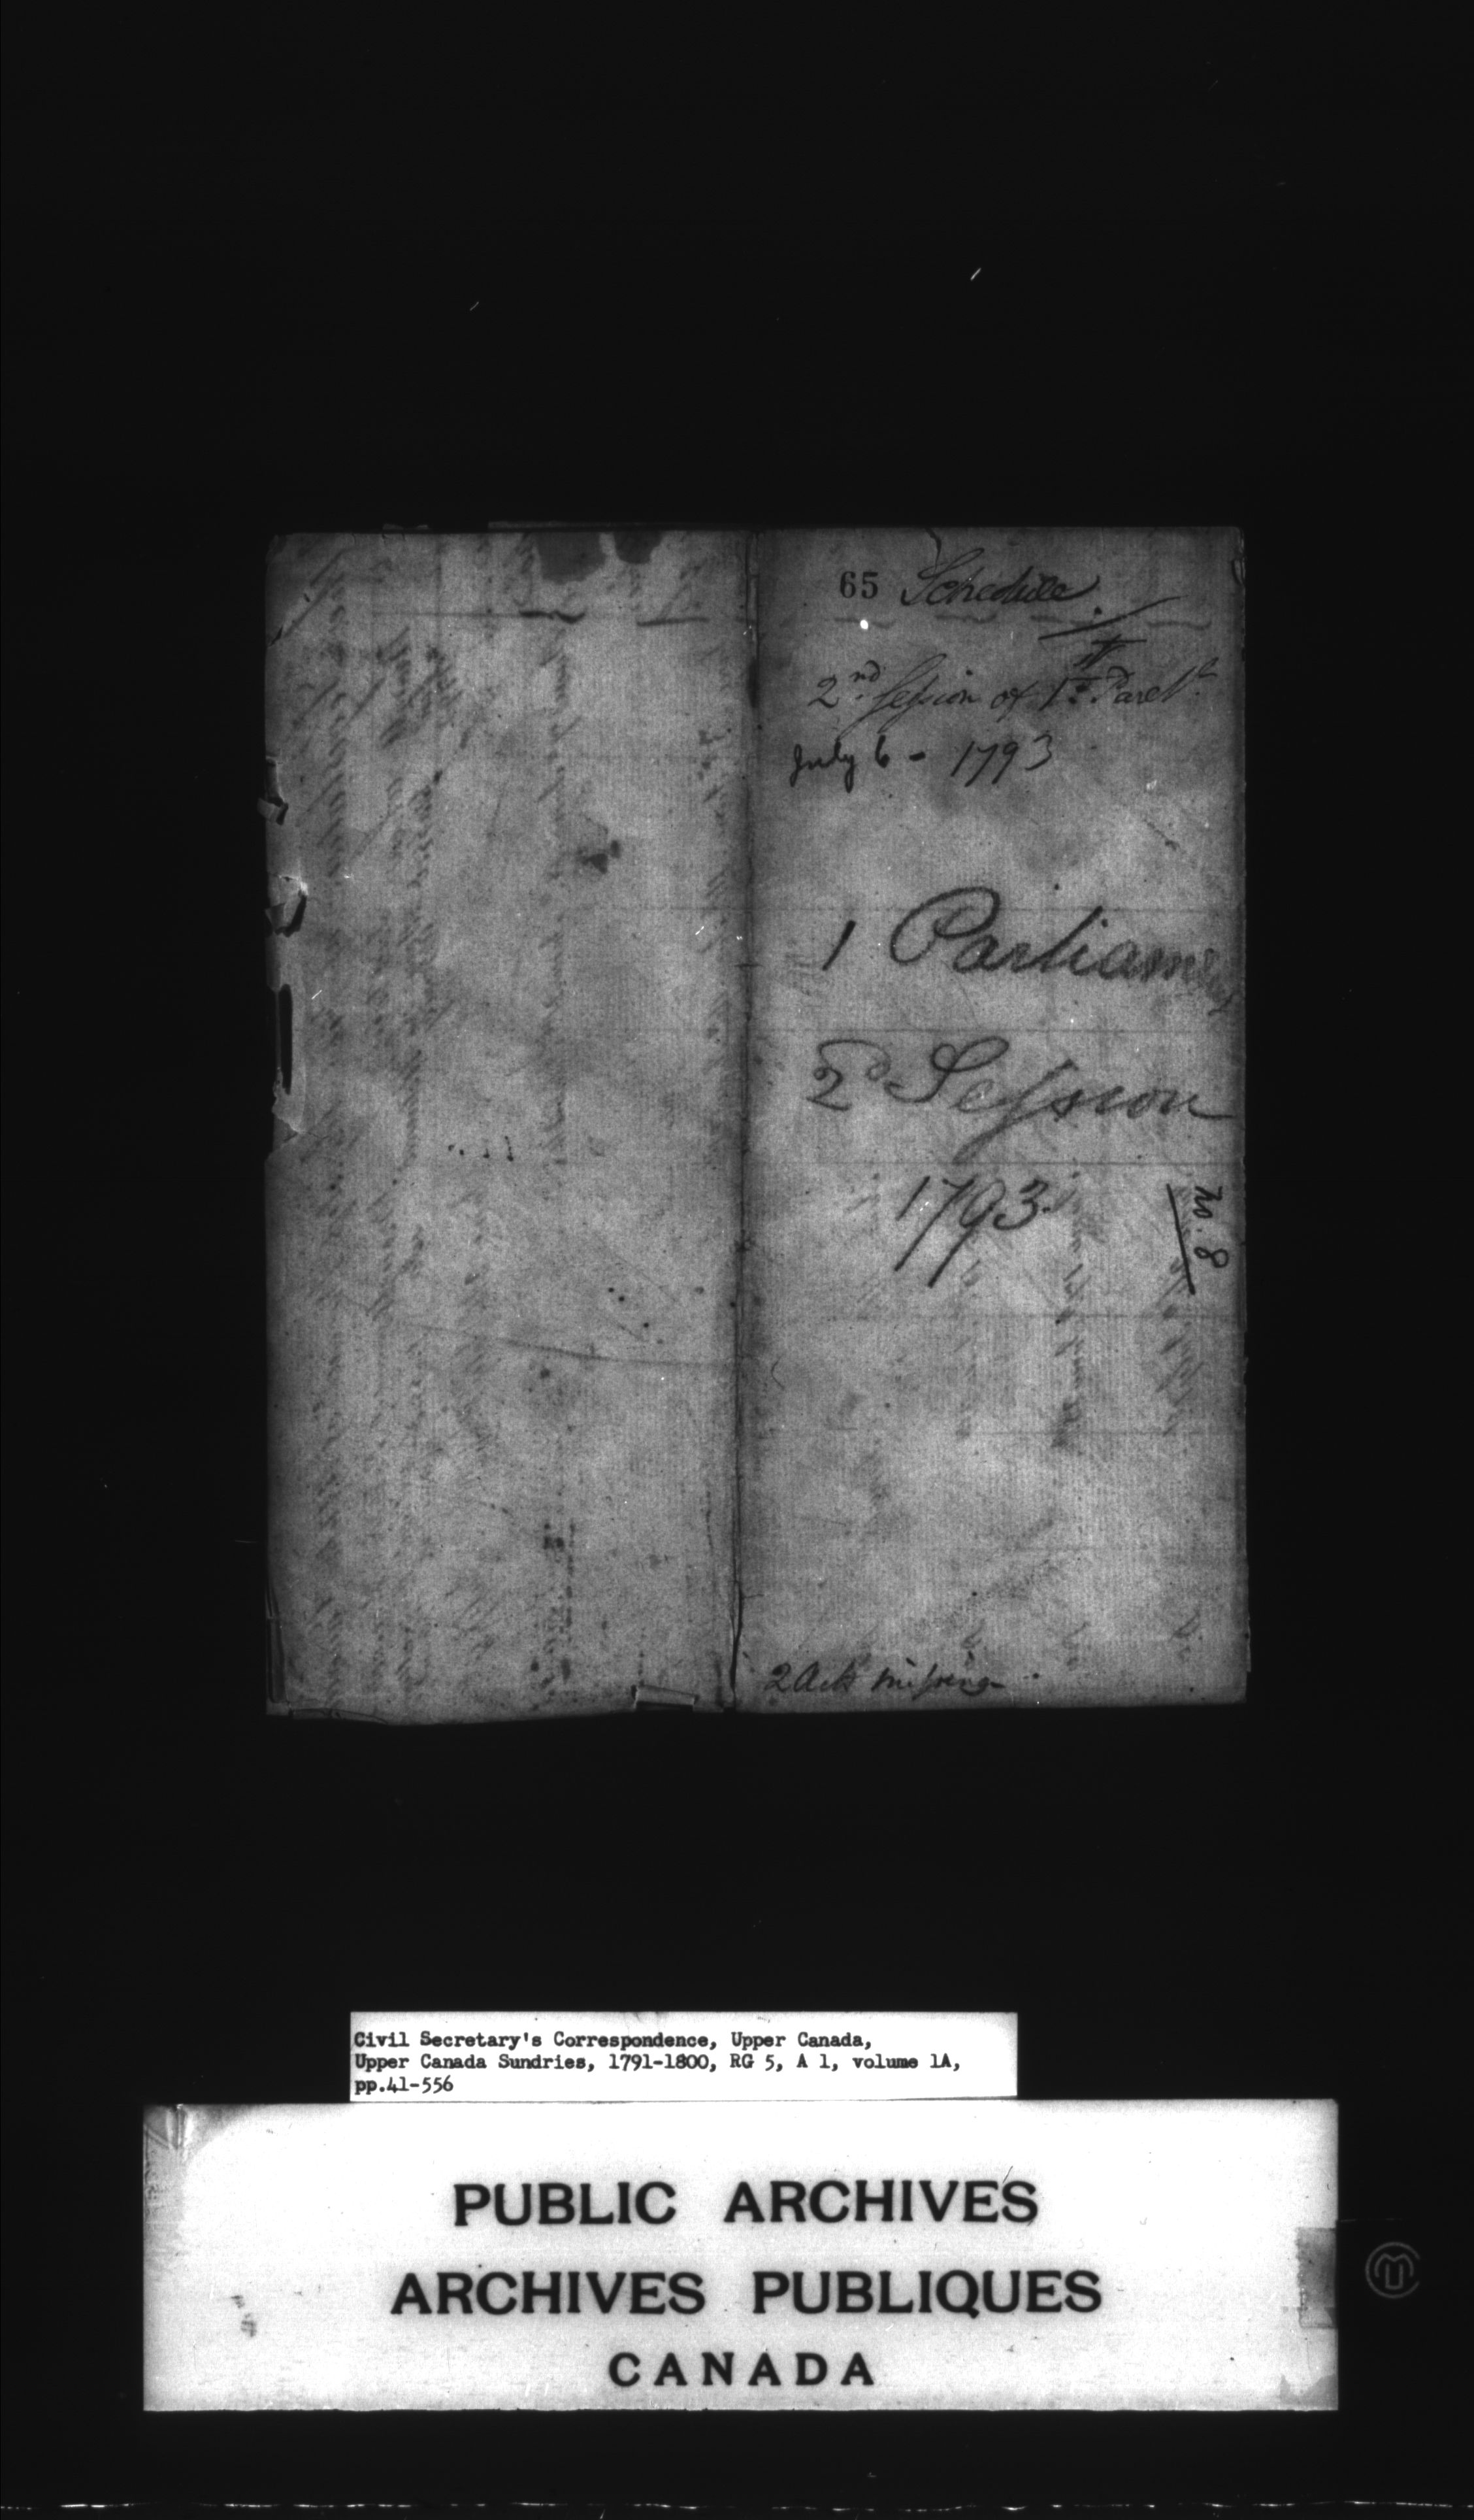 65 Schedule
2nd Session of 1st Parlt
July 6 - 1793
1 Parliament
2d Session
1793.
No. 8
2 Acts missing
Civil Secretary's Correspondence, Upper Canada,
Upper Canada Sundries, 1791-1800, RG 5, A 1, volume 1A,
pp.41-556
PUBLIC ARCHIVES
ARCHIVES PUBLIQUES
CANADA